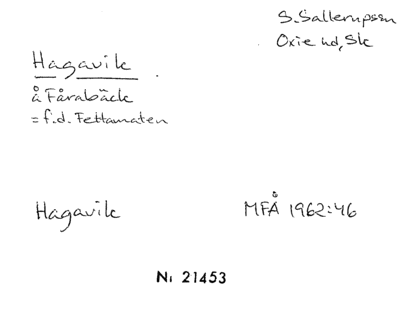 S. Sallerupssn
Oxie hd, Sk
Hagavik
å Fårabäck
= f.d. Fettamaten
Hagavik
MFÅ 1962:46
Nı 21453